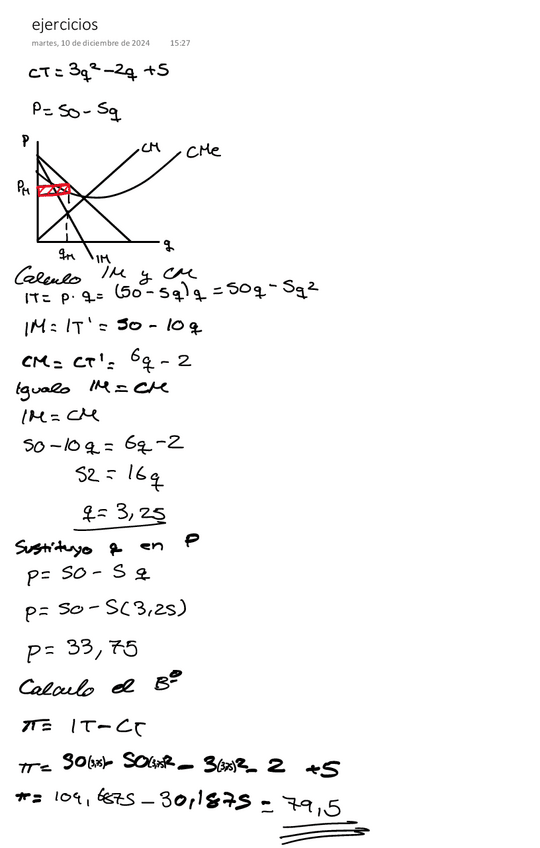 ejercicios
martes, 10 de diciembre de 2024 15:27
CT = 3q² - 2q + 5
P = 50 - 5q
P
CM
CMe
PM
q
qM
IM
Calculo IM y CM
IT = P · q = (50 - 5q)q = 50q - 5q²
IM = IT' = 50 - 10q
CM = CT' = 6q - 2
Igualo IM = CM
IM = CM
50 - 10q = 6q - 2
52 = 16q
q = 3,25
Sustituyo q en P
P = 50 - 5q
P = 50 - 5(3,25)
P = 33,75
Calculo el Bº
π = IT - CT
π = 50(3,25) - 50(3,25)² - 3(3,25)² - 2 + 5
π = 109,6875 - 30,1875 = 79,5